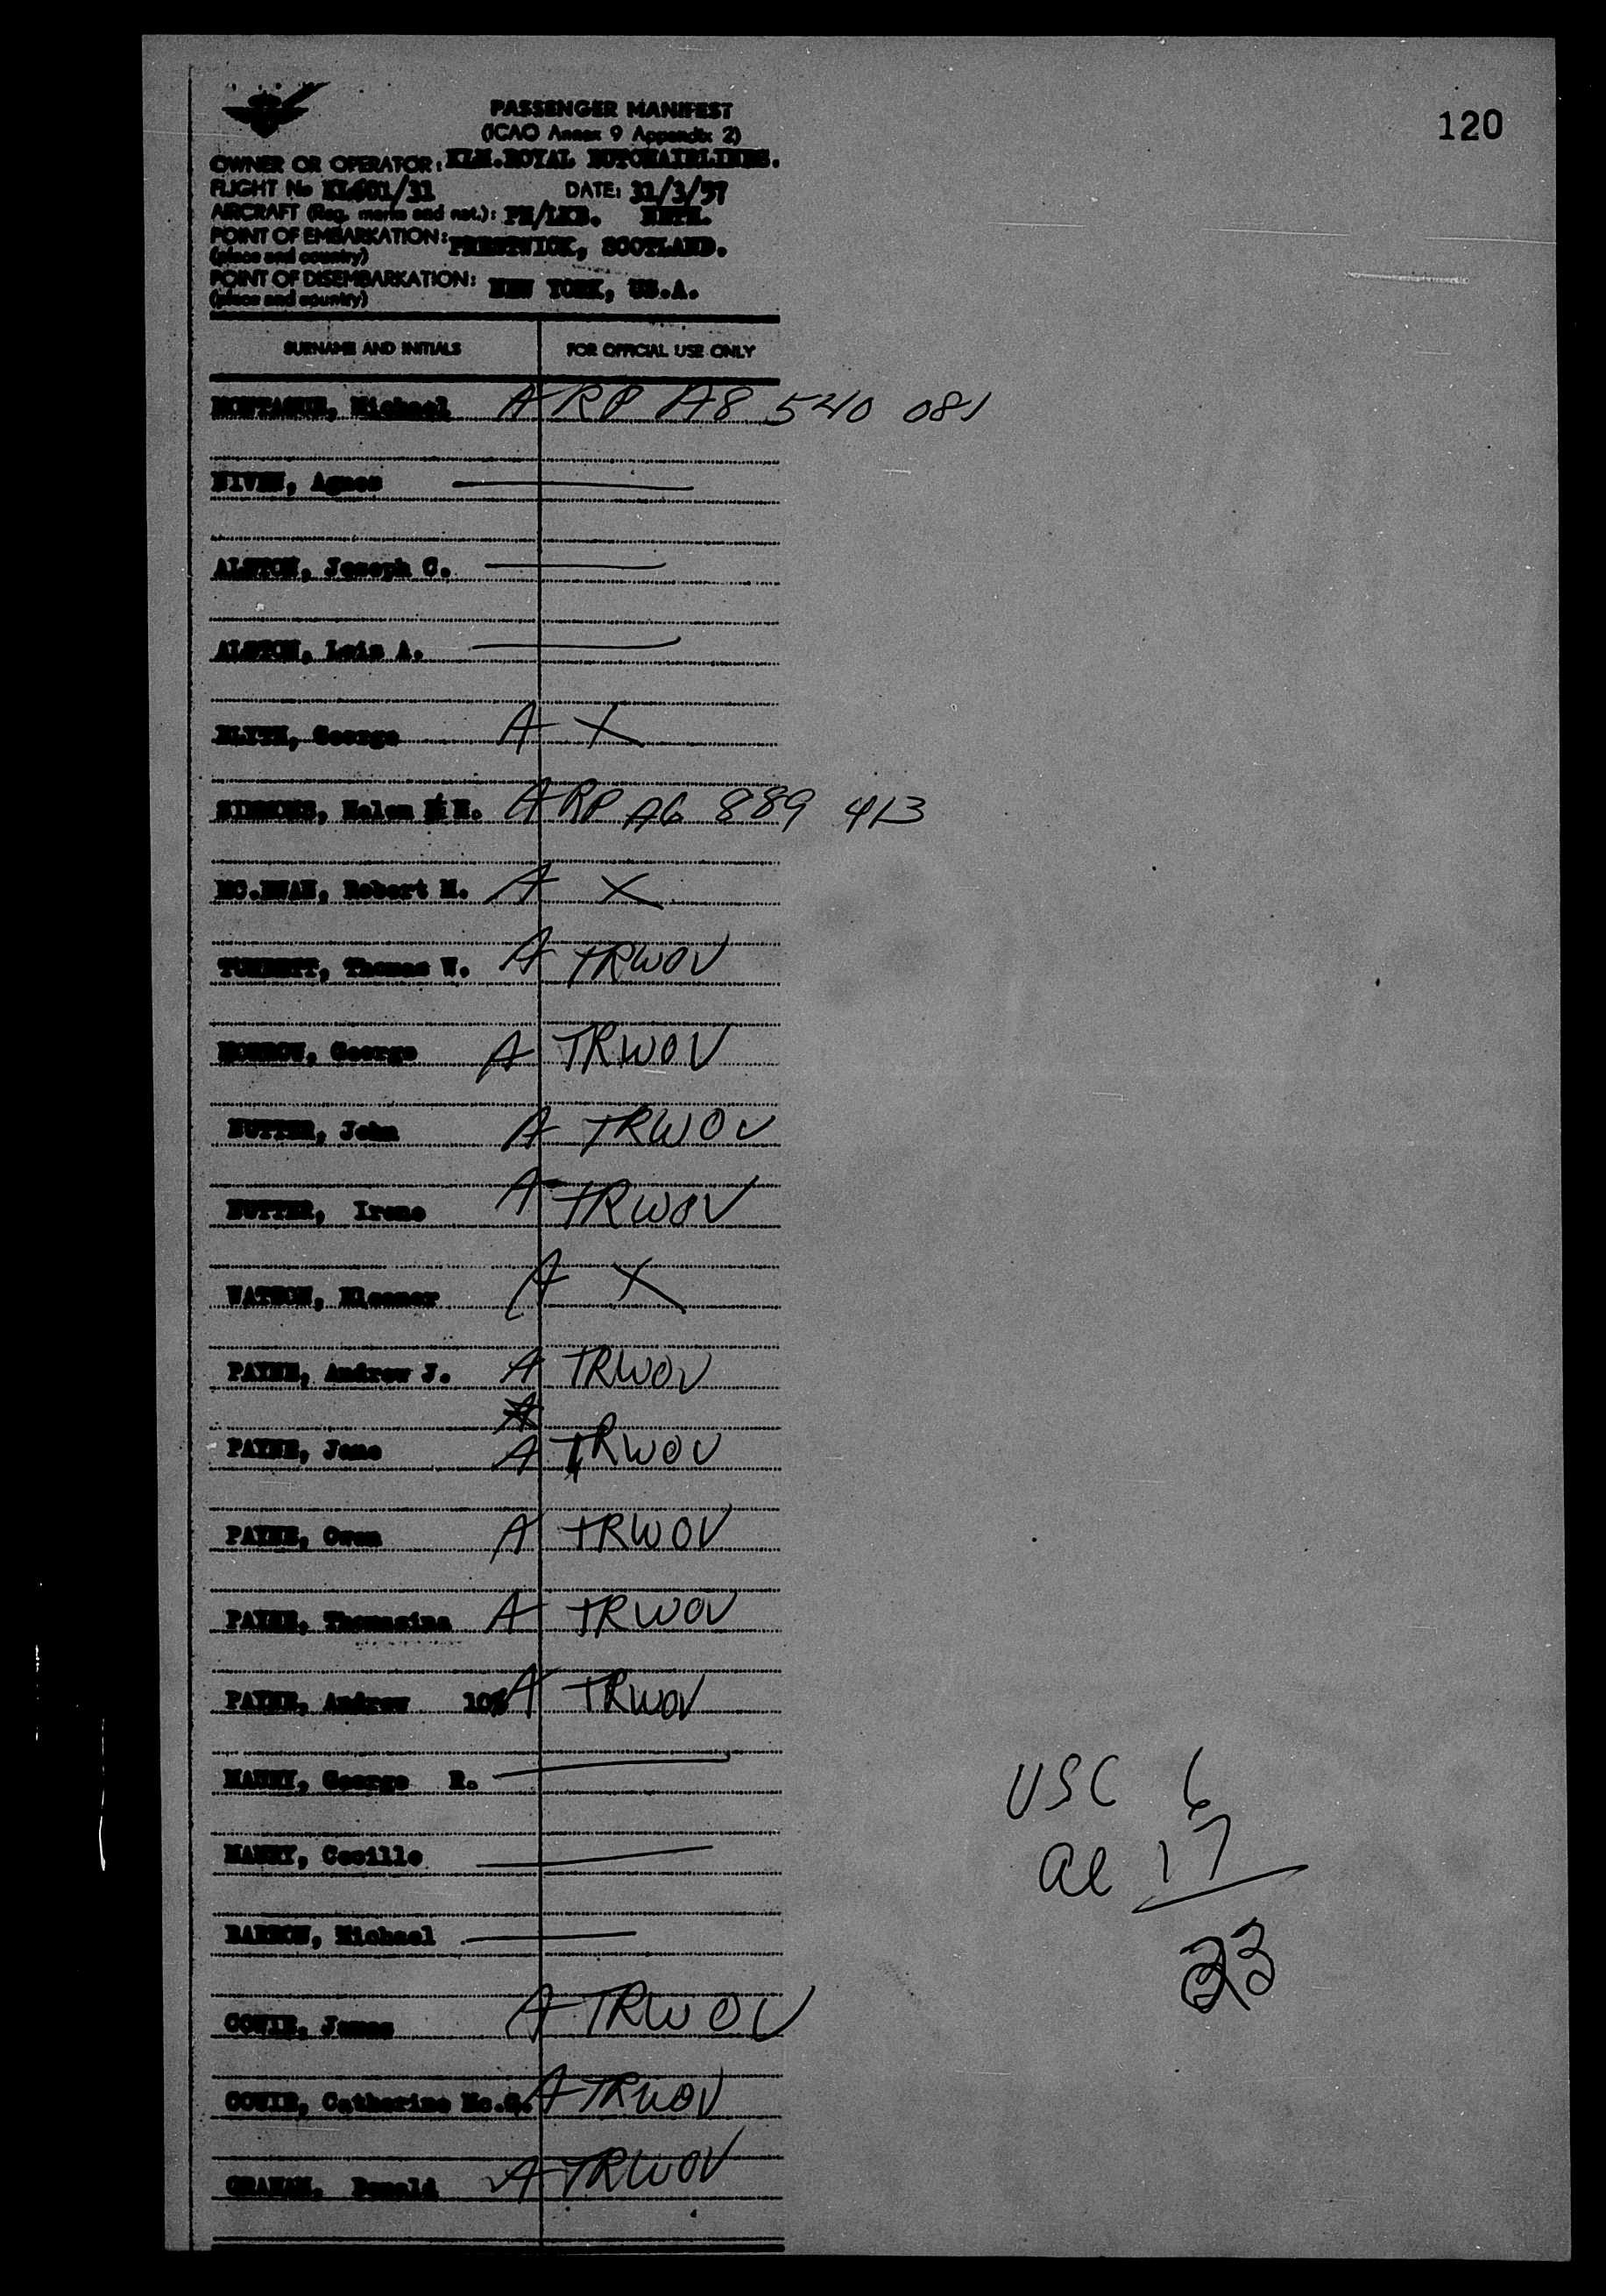 120
PASSENGER MANIFEST
(ICAO Annex 9 Appendix 2)
OWNER OR OPERATOR: KLM.ROYAL DUTCHAIRLINES.
FLIGHT No KL601/31 DATE: 31/3/57
AIRCRAFT (Reg. marks and nat.): PH/LKB. NETH.
POINT OF EMBARKATION: PRESTWICK, SCOTLAND.
(place and country)
POINT OF DISEMBARKATION: NEW YORK, US.A.
(place and country)
SURNAME AND INITIALS FOR OFFICIAL USE ONLY
MONTAGUE, Michael A RP A8 540 081
NIVEN, Agnes
ALSTON, Joseph C.
ALSTON, Lois A.
BLYTH, George A X
SIMMONS, Helen H. A RP A6 889 413
MC.EWAN, Robert M. A X
Thomas W. A TRWOV
MORROW, George A TRWOV
NUTTER, John A TRWOV
NUTTER, Irene A TRWOV
WATSON, Eleanor A X
PAYNE, Andrew J. A TRWOV
PAYNE, Jane A TRWOV
PAYNE, Owen A TRWOV
PAYNE, Thomasina A TRWOV
PAYNE, Andrew 10% A TRWOV
George R.
Cecille
BARRON, Michael
COWIE, James A TRWOV
COWIE, Catherine Mc.G. A TRWOV
GRAHAM, Donald A TRWOV
USC 6
al 17
23